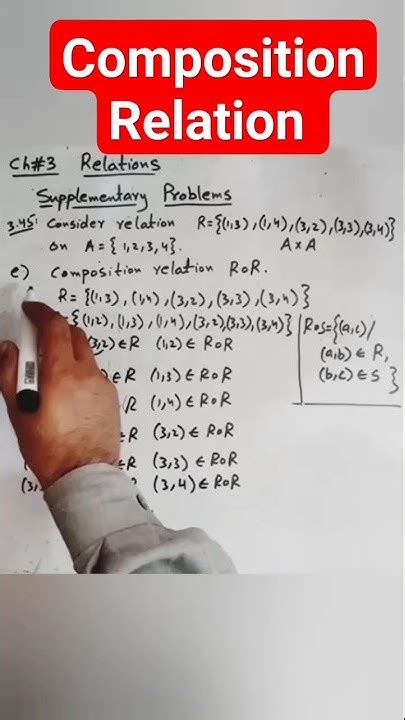 Composition
Relation
Ch#3 Relations
Supplementary Problems
3.45: Consider relation R={(1,3),(1,4),(3,2),(3,3),(3,4)}
on A={1,2,3,4}. A×A
e) Composition relation R∘R.
R={(1,3),(1,4),(3,2),(3,3),(3,4)}
={(1,2),(1,3),(1,4),(3,2),(3,3),(3,4)}
(3,2)∈R (1,2)∈R∘R
∈R (1,3)∈R∘R
R (1,4)∈R∘R
∈R (3,2)∈R∘R
∈R (3,3)∈R∘R
(3, R (3,4)∈R∘R
R∘S={(a,c)/
(a,b)∈R,
(b,c)∈S}